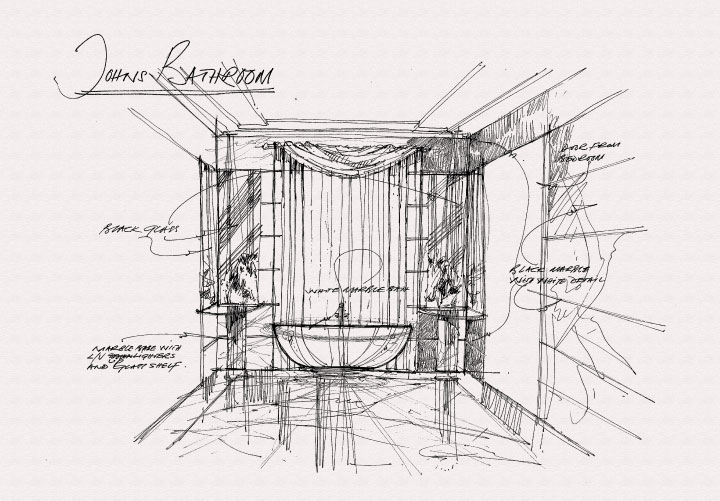 JOHNS BATHROOM
DOOR FROM
BEDROOM
BLACK GLASS
BLACK MARBLE
WITH WHITE DETAIL
WHITE MARBLE BATH
MARBLE BASE WITH
UP
LIGHTERS
AND GLASS SHELF.